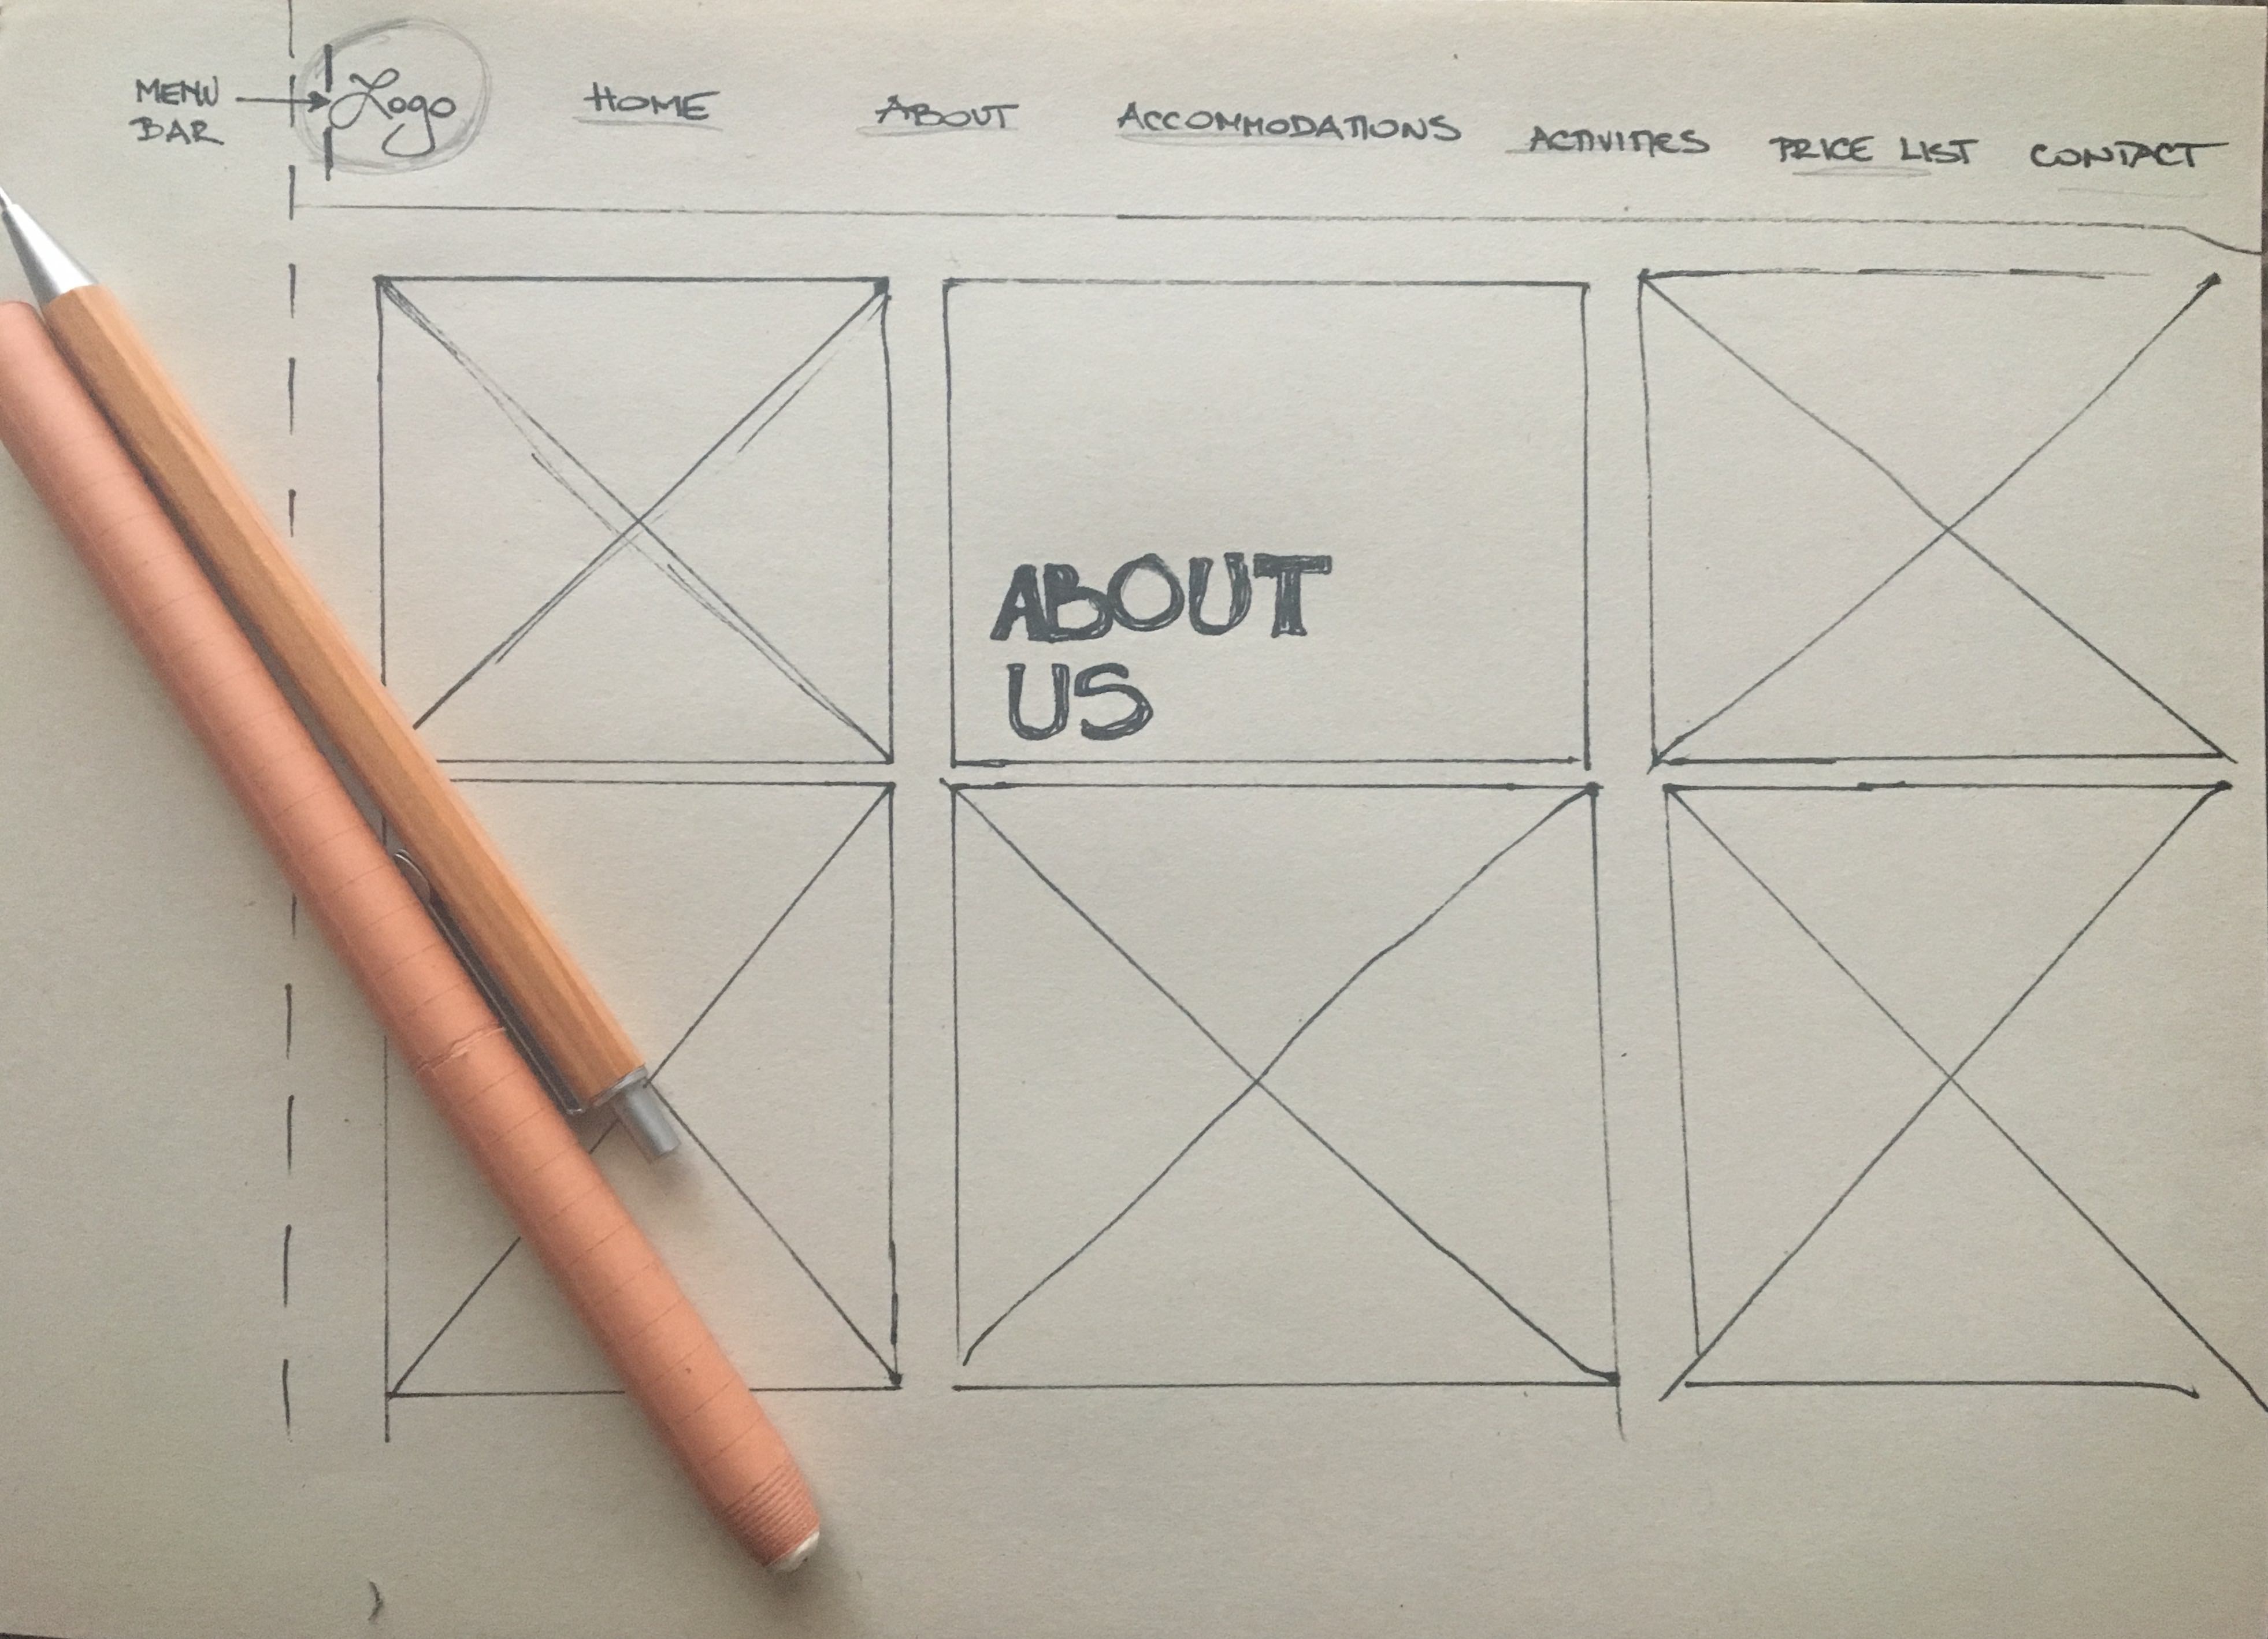 MENU
BAR
Logo
HOME
ABOUT
ACCOMMODATIONS
ACTIVITIES
PRICE LIST
CONTACT
ABOUT
US